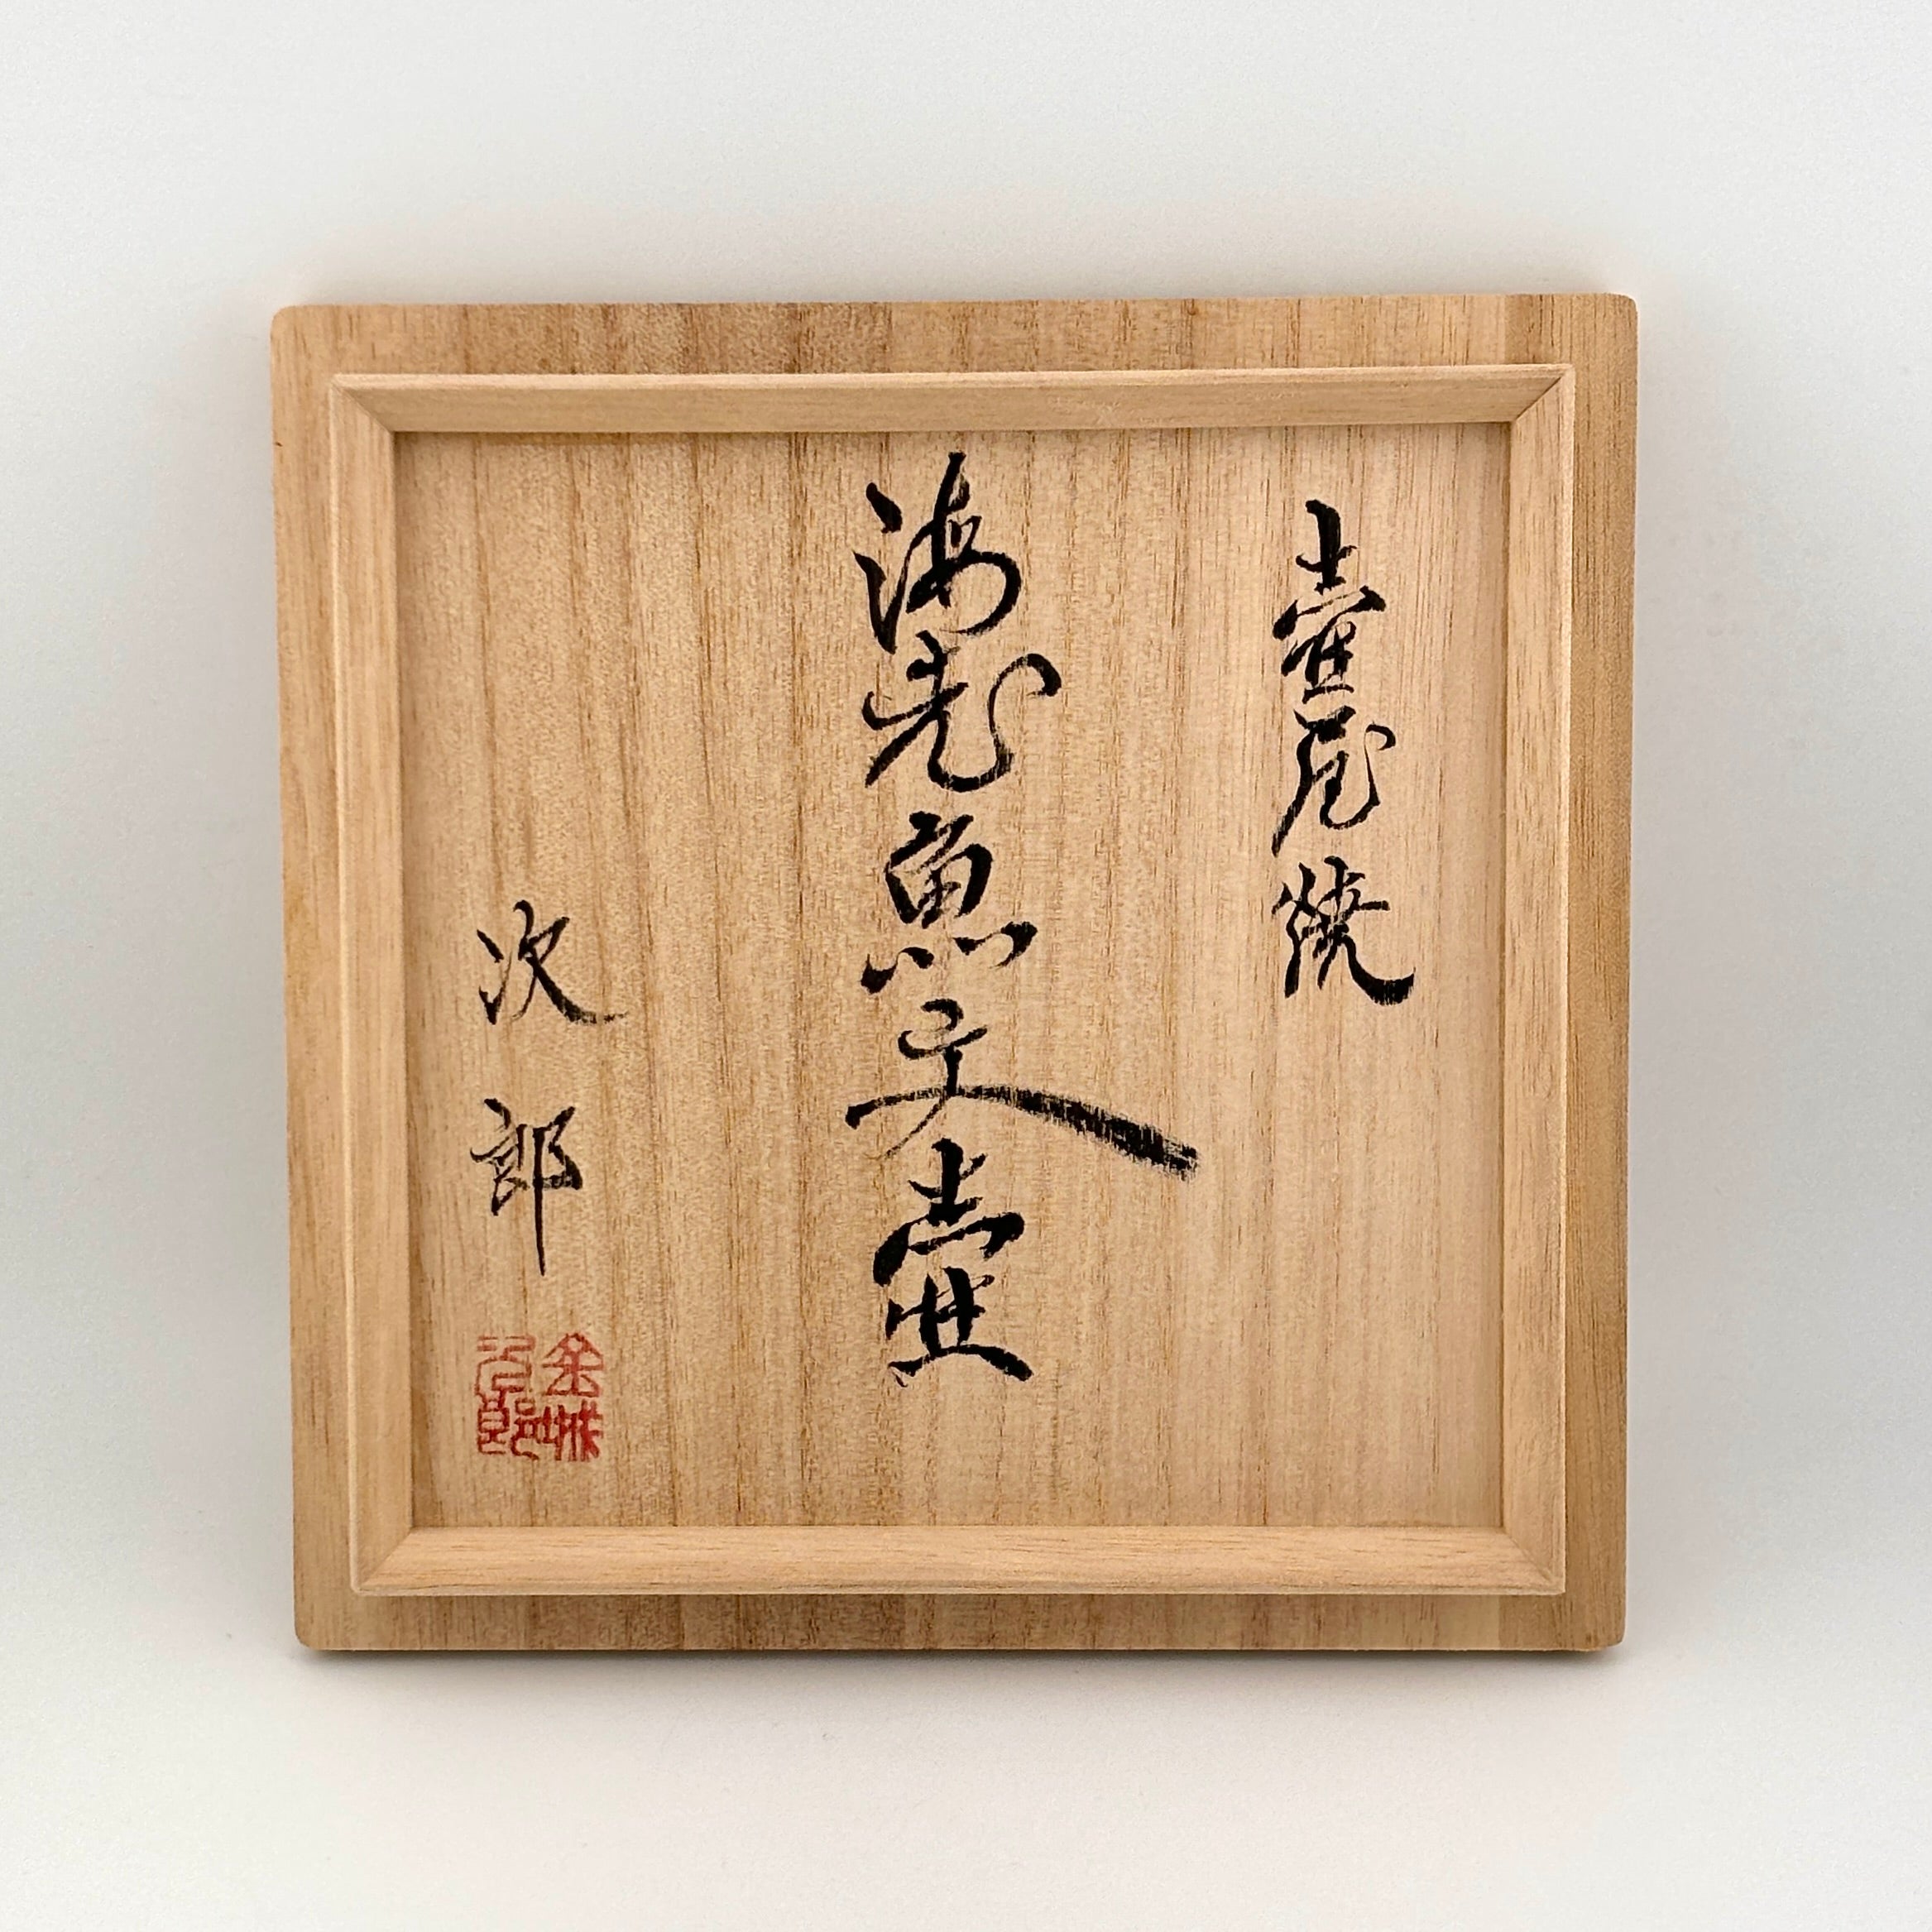 壷屋焼
海老魚文壷
次郎
金城次郎